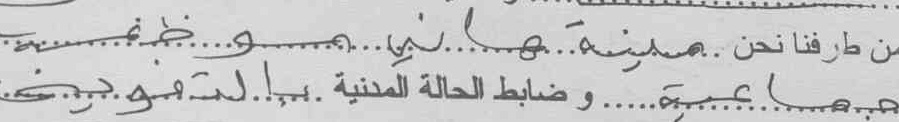 من طرفنا نحن صبرينة هاني موظفة
جماعية و ضابط الحالة المدنية بالتفويض